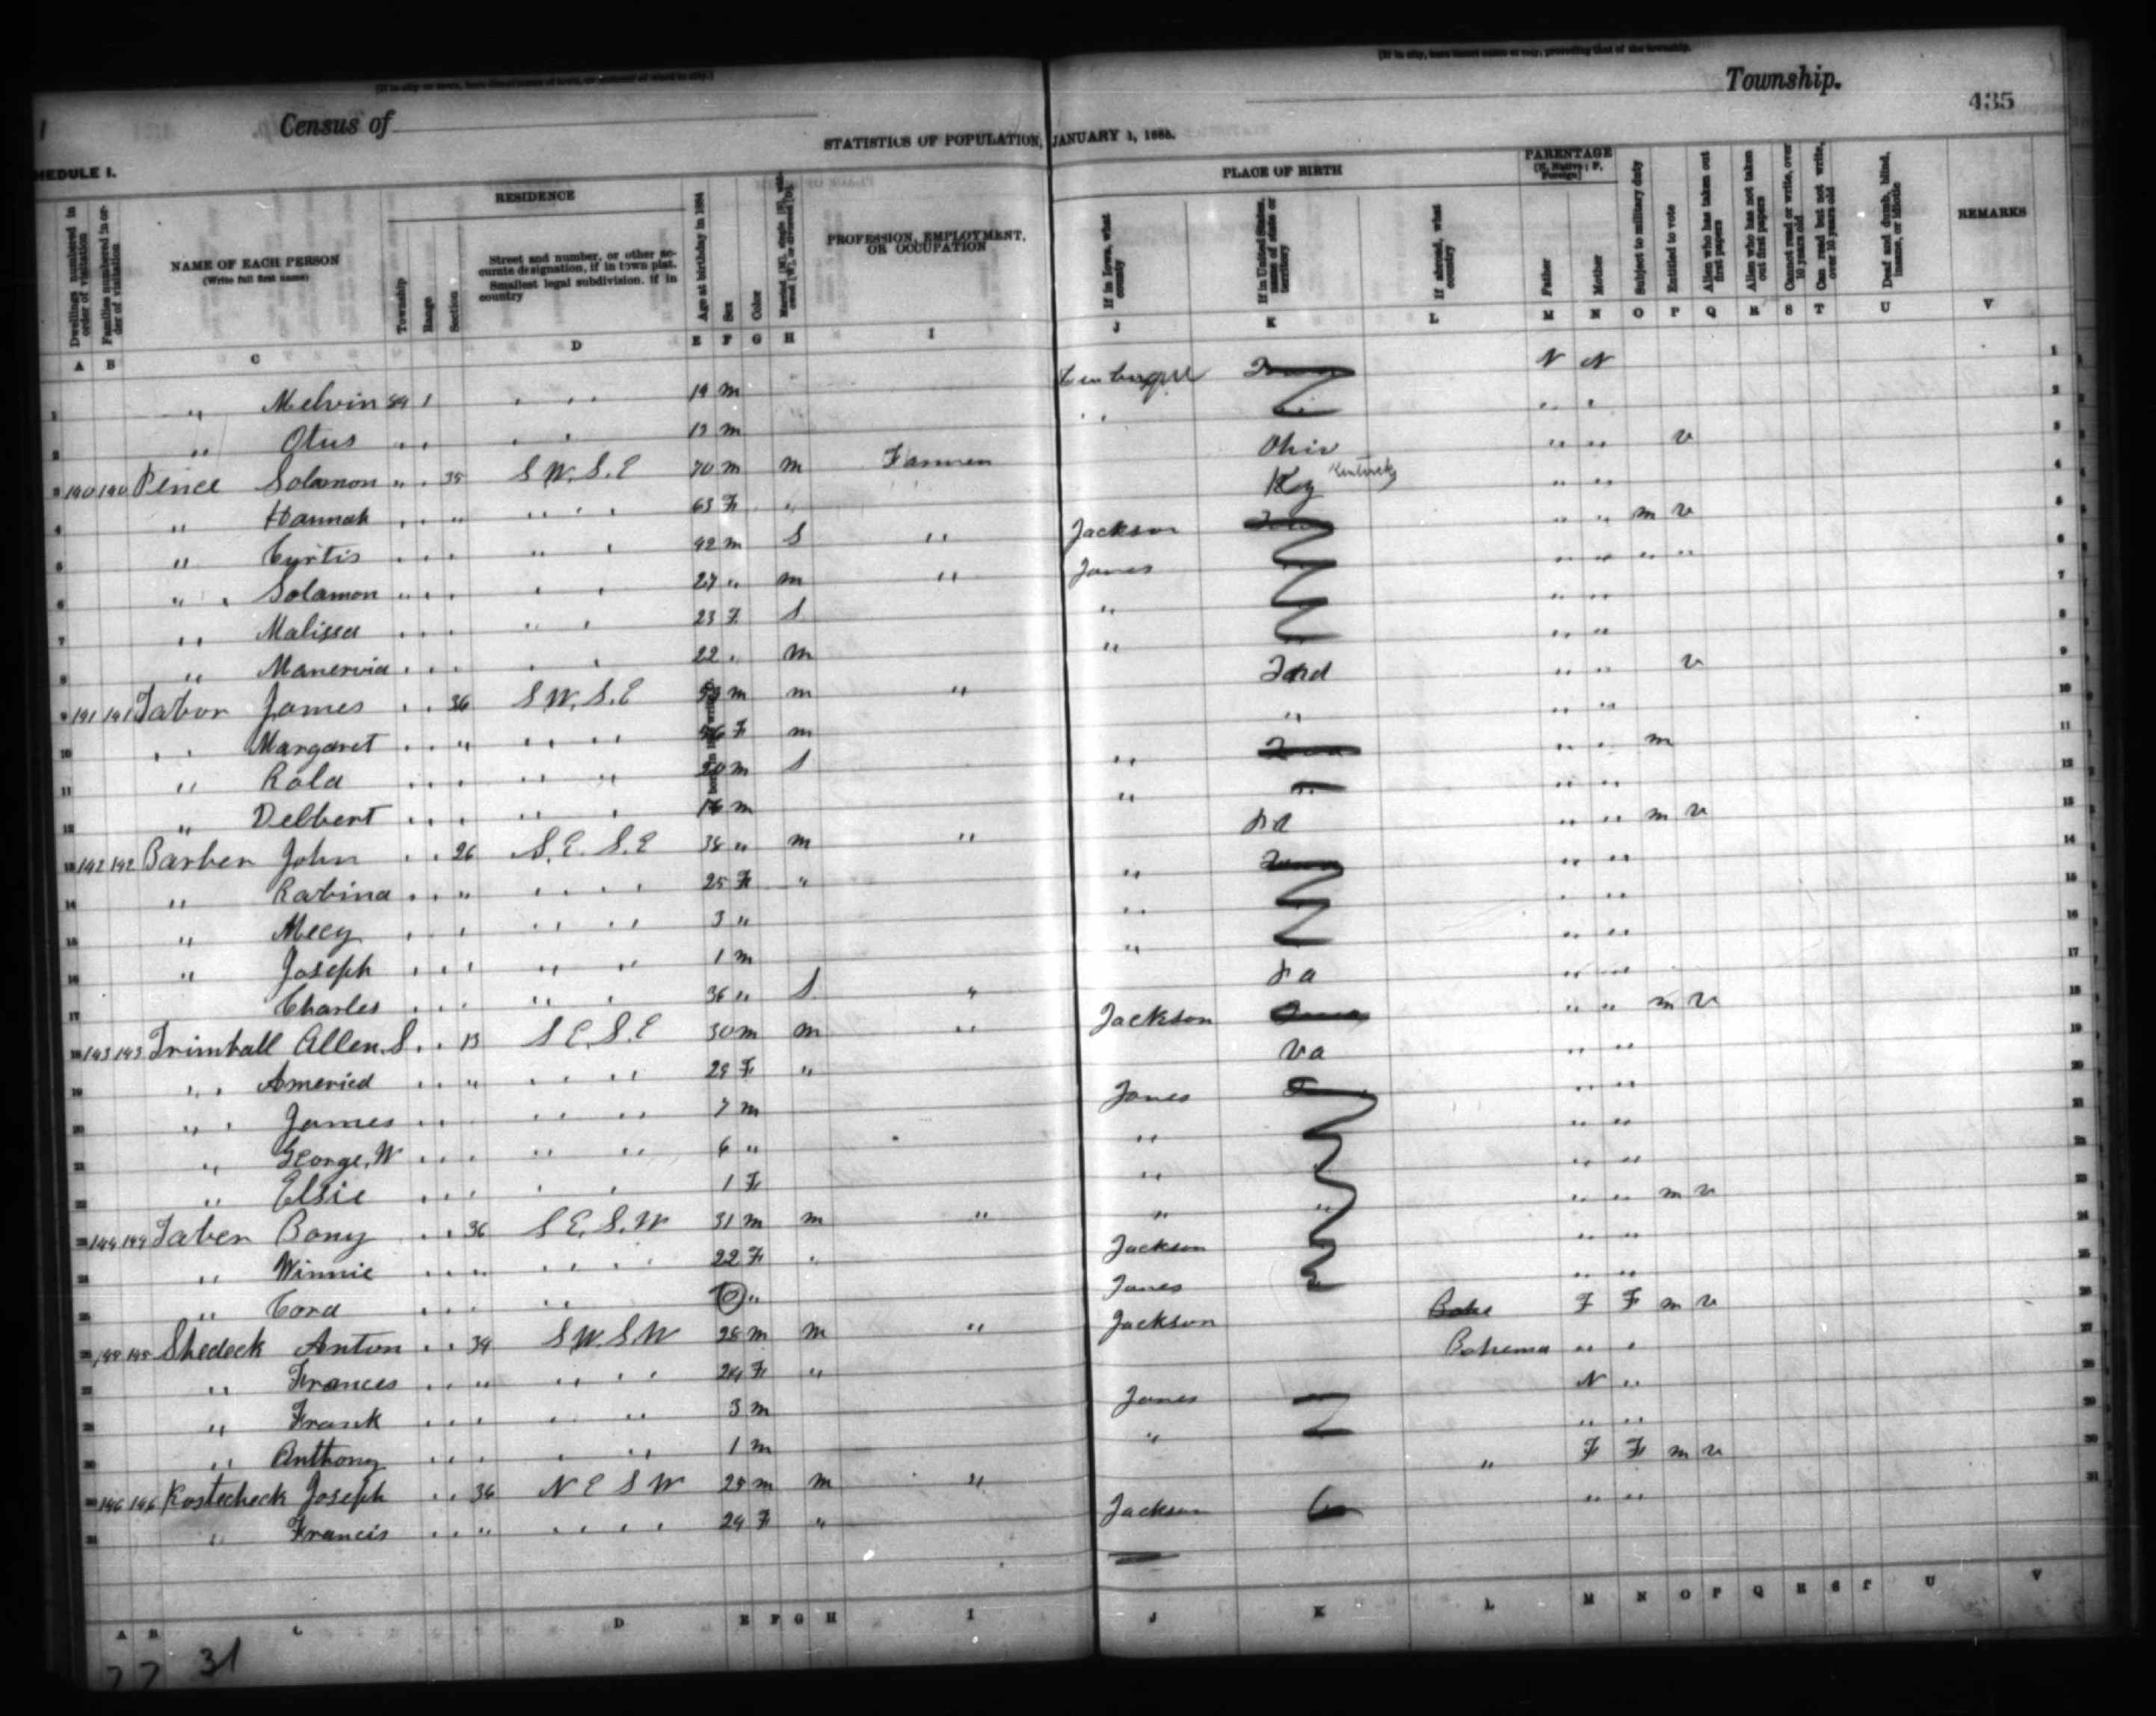 Census of
Township.
435
STATISTICS OF POPULATION, JANUARY 1, 1885.
NAME OF EACH PERSON
(Write full first name)
RESIDENCE
PROFESSION, EMPLOYMENT, OR OCCUPATION
PLACE OF BIRTH
PARENTAGE
REMARKS
Dwellings numbered in order of visitation
Families numbered in order of visitation
Township
Range
Section
Street and number, or other accurate designation, if in town plat. Smallest legal subdivision, if in country
Age at birthday in 1884
Sex
Color
If in Iowa, what county
If in United States, name of state or territory
If abroad, what country
Father
Mother
Subject to military duty
Entitled to vote
Alien who has taken out first papers
Alien who has not taken out first papers
Cannot read or write, over 10 years old
Can read but not write, over 10 years old
Deaf and dumb, blind, insane, or idiotic
A B C D E F G H I J K L M N O P Q R S T U V
1 " Melvin 84 1 19 m N N
2 " Otus " " 13 m
3 140 140 Pence Solomon " " 35 S W. S. E 70 m m Farmer Ohio " " v
4 " Hannah " " " 63 F " Ky Kentucky " "
5 " Curtis " " " 42 m S " Jackson " " m v
6 " Solamon " " " 27 " m " Jones " " " "
7 " Malissa " " " 23 F S " " "
8 " Manervia " " " 22 " m " " "
9 141 141 Tabor James " " 36 S W. S. E m m " Ind " " v
10 " Margaret " " " F m " " "
11 " Rola " " " m S " " " m
12 " Delbert " " " m " " "
13 142 142 Barber John " " 26 S. E. S. E 38 " m " " " m v
14 " Rabina " " " 25 F " " " "
15 " Mecy " " " 3 " " " "
16 " Joseph " " " 1 m " " "
17 Charles " " " 36 " S " " "
18 143 143 Trimball Allen. S " " 13 S E. S. E 30 m m " Jackson " " m v
19 " Americd " " " 29 F " Va " "
20 " James " " " 7 m Jones " "
21 " George. W " " " 6 " " " "
22 " Elsie " " " 1 F " " "
23 144 144 Taber Bony " " 36 S E. S. W 31 m m " " " " " m v
24 " Winnie " " " 22 F " Jackson " "
25 " Cora " " " 0 " Jones " "
26 145 145 Shedeck Anton " " 34 S W. S. W 28 m m " Jackson F F m v
27 " Frances " " " 24 F " Bohema " "
28 " Frank " " " 3 m Jones N "
29 " Anthony " " " 1 m " " "
30 146 146 Kostecheck Joseph " " 36 N E S W 25 m m " " F F m v
31 " Francis " " " 24 F " Jackson " "
A B C D E F G H I J K L M N O P Q R S T U V
31